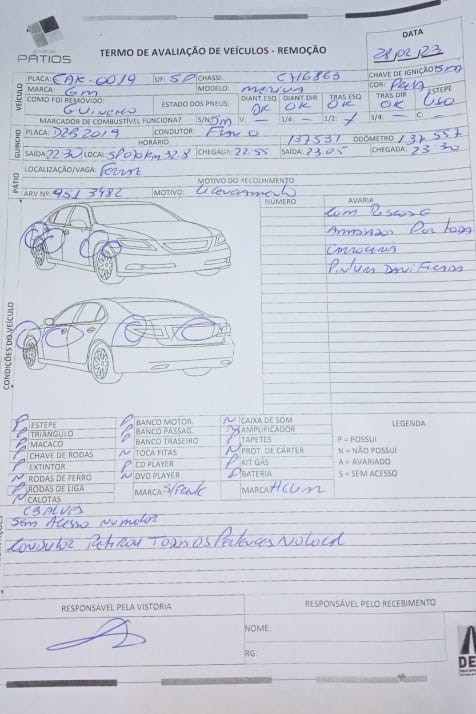 PÁTIOS
TERMO DE AVALIAÇÃO DE VEÍCULOS - REMOÇÃO
DATA
28/02/23
VEÍCULO
PLACA: EAK-0019 UF: SP CHASSI: CHAVE DE IGNIÇÃO: Sim
MARCA: GM MODELO: meriva COR: Preta
COMO FOI REMOVIDO: GUINCHO ESTADO DOS PNEUS: DIANT.ESQ OK DIANT.DIR OK TRAS.ESQ OK TRAS.DIR OK ESTEPE USO
MARCADOR DE COMBUSTÍVEL FUNCIONA? S/N: Sim V: — 1/4: — 1/2: 3/4: — C: —
GUINCHO
PLACA: CONDUTOR: HORÁRIO 137531 ODÔMETRO 137.557
SAÍDA: 22:30 LOCAL: SP 070 Km 32.8 CHEGADA: 22:55 SAÍDA: 23:05 CHEGADA: 23:30
PÁTIO
LOCALIZAÇÃO/VAGA:
MOTIVO DO RECOLHIMENTO
ARV Nº: 9513482 MOTIVO: Licenciamento
CONDIÇÕES DO VEÍCULO
NÚMERO AVARIA
Com Riscos e
Amassados Por toda
Carroceria
Pintura Danificada
P ESTEPE
P TRIÂNGULO
P MACACO
P CHAVE DE RODAS
P EXTINTOR
N RODAS DE FERRO
P RODAS DE LIGA
N CALOTAS
P BANCO MOTOR.
P BANCO PASSAG.
P BANCO TRASEIRO
N TOCA FITAS
P CD PLAYER
N DVD PLAYER
MARCA:
N CAIXA DE SOM
AMPLIFICADOR
P TAPETES
N PROT. DE CÁRTER
KIT GÁS
BATERIA
MARCA:
LEGENDA
P = POSSUI
N = NÃO POSSUI
A = AVARIADO
S = SEM ACESSO
Sem Acesso No motor
Condutor Retirou Todos Os Pertences No local
RESPONSÁVEL PELA VISTORIA
RESPONSÁVEL PELO RECEBIMENTO
NOME:
RG: